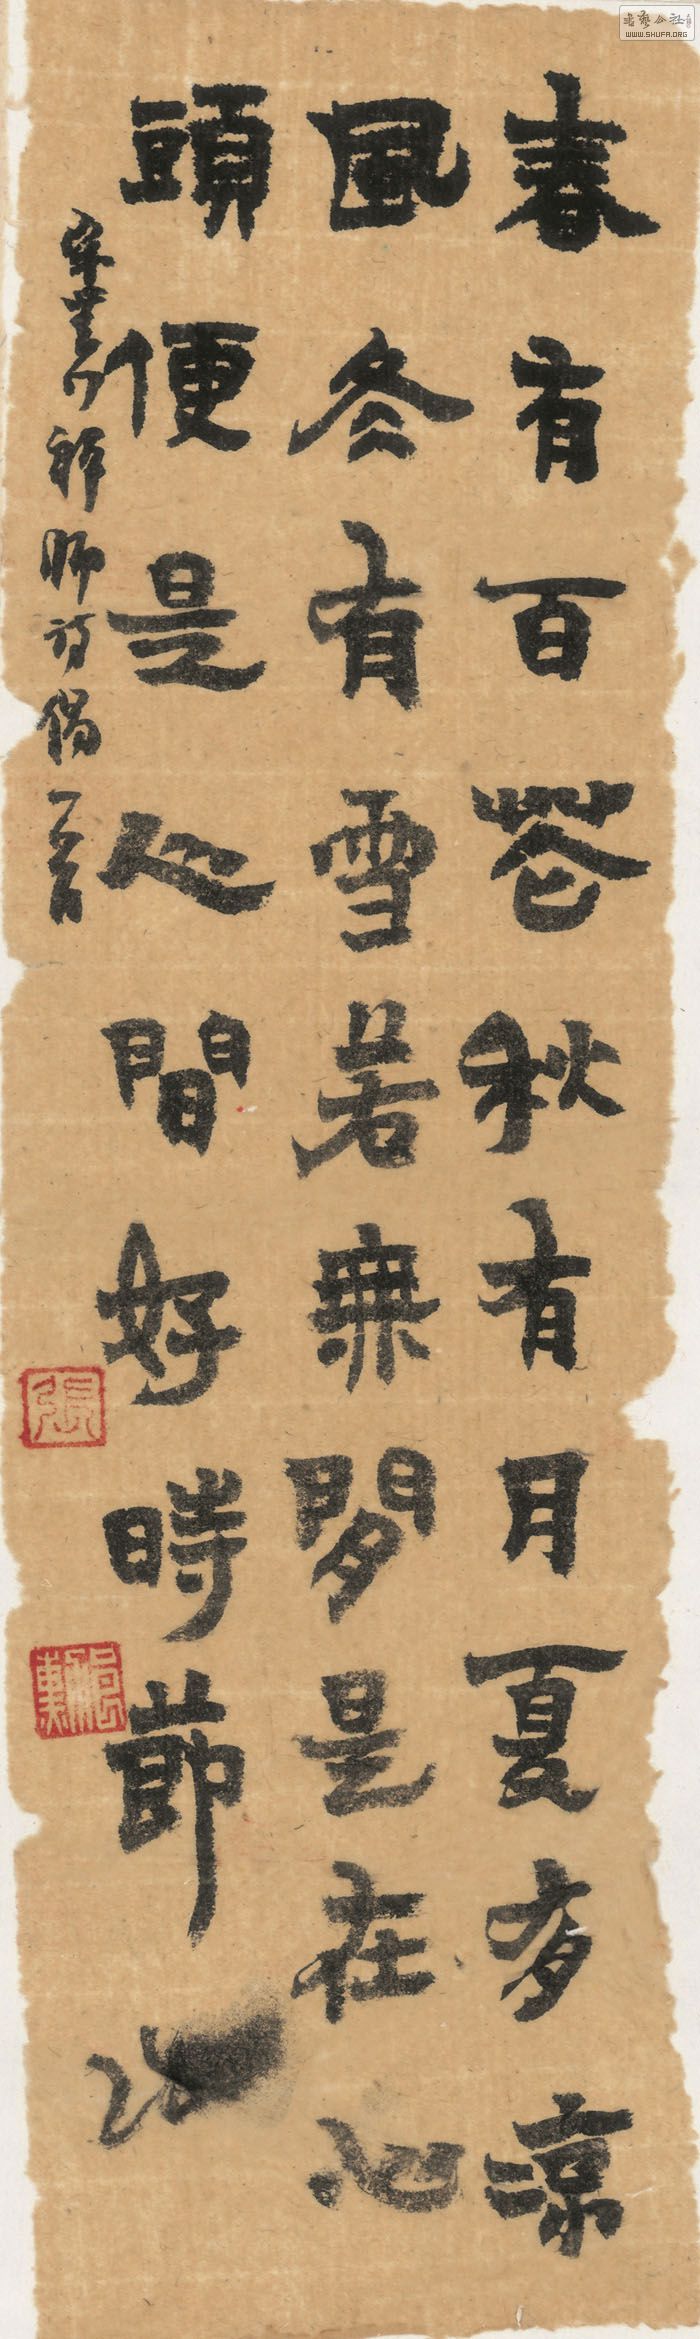 春有百花秋有月夏有涼
風冬有雪若無閒是在心
頭便是人間好時節
宋慧開禅師詩偈一首
張
書藝公社
WWW.SHUFA.ORG